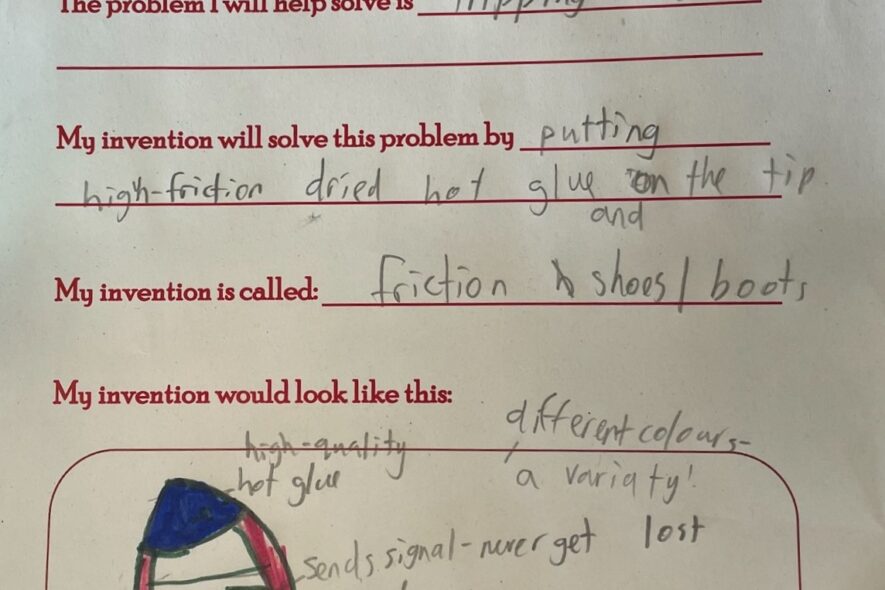 The problem I will help solve is tripping
My invention will solve this problem by putting
high-friction dried hot glue on the tip
and
My invention is called: friction shoes/boots
My invention would look like this:
different colours-
a variaty!
high-quality
hot glue
sends signal-never get lost